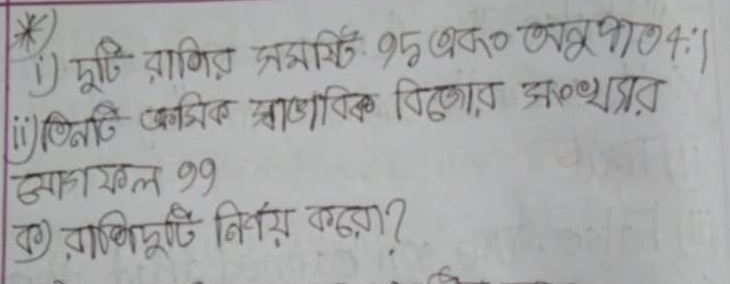 *)
i) দুটি রাশির সমষ্টি ৭৮ এবং অনুপাত 4:1
ii) তিনটি ক্রমিক স্বাভাবিক বিজোর সংখ্যার
যোগফল ৭৭
ক) রাশিদুটি নির্ণয় করো?